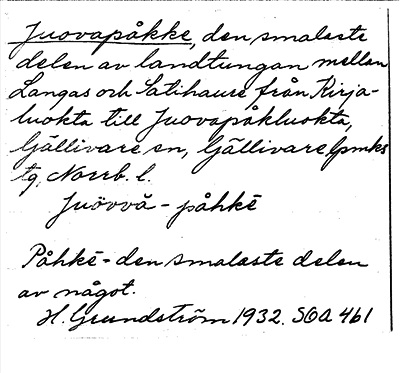 Juovapåkke, den smalaste
delen av landtungan mellan
Langas och Satihaure från Kirja-
luokta till Juovapåkluokta,
Gällivare sn, Gällivare lpmks
tg, Norrb. l.
Juŏvvă - påhkē
Påhkē - den smalaste delen
av något.
H. Grundström 1932. SOA 461